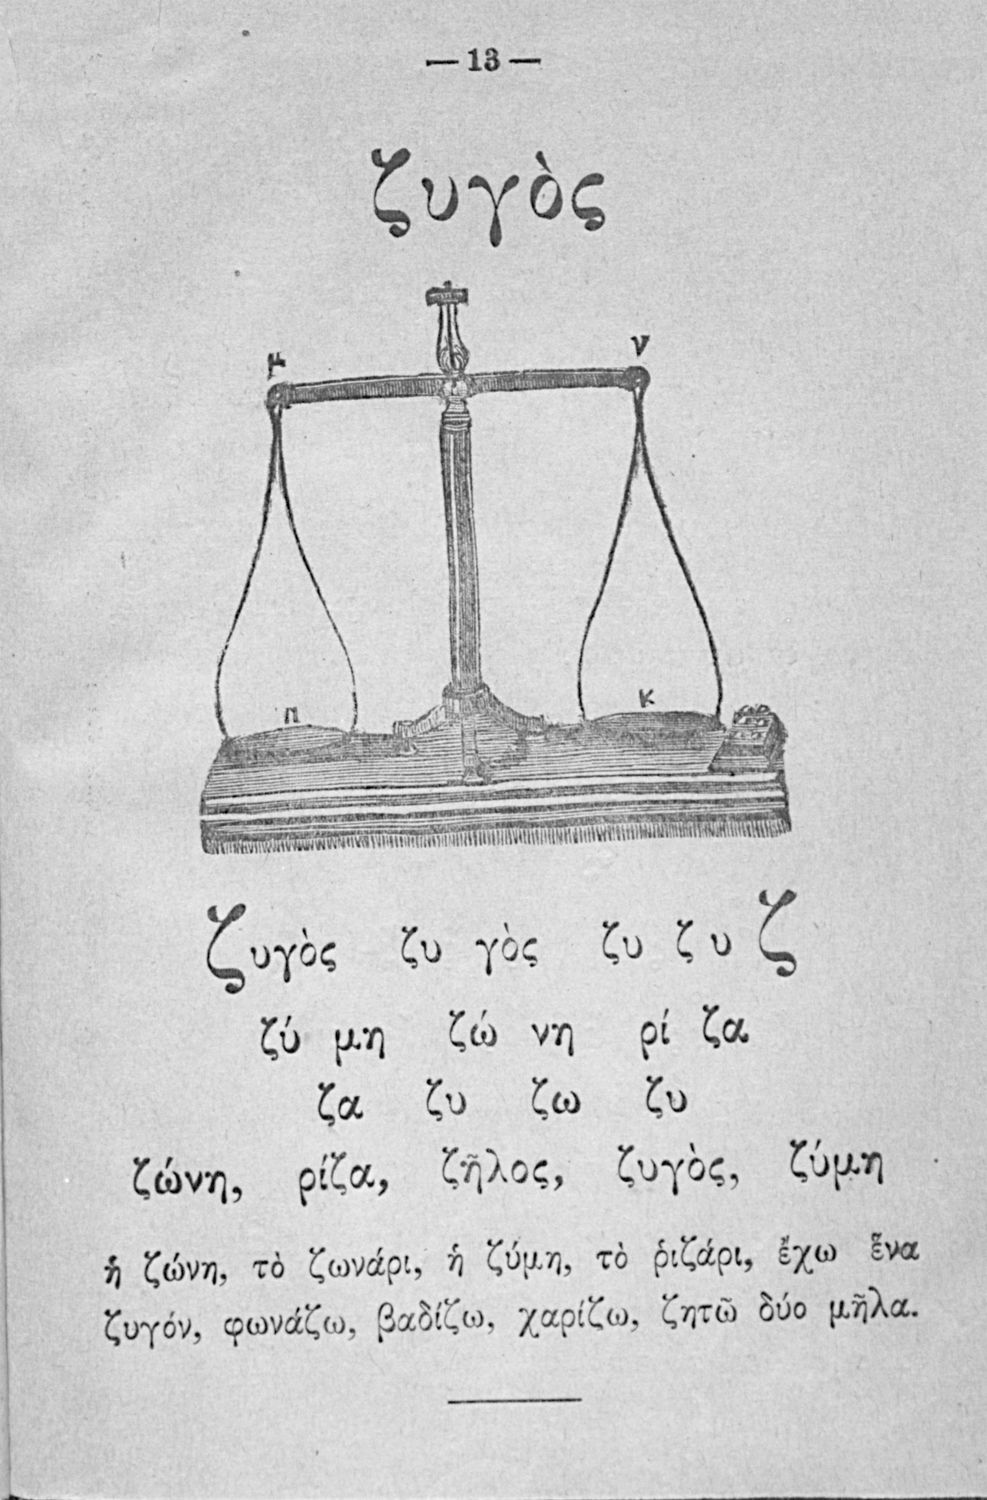 — 13 —
ζυγὸς
μ
ν
π
κ
ζυγὸς ζυ γὸς ζυ ζ υ ζ
ζύ μη ζώ νη ρί ζα
ζα ζυ ζω ζυ
ζώνη, ρίζα, ζῆλος, ζυγὸς, ζύμη
ἡ ζώνη, τὸ ζωνάρι, ἡ ζύμη, τὸ ῥιζάρι, ἔχω ἕνα
ζυγόν, φωνάζω, βαδίζω, χαρίζω, ζητῶ δύο μῆλα.